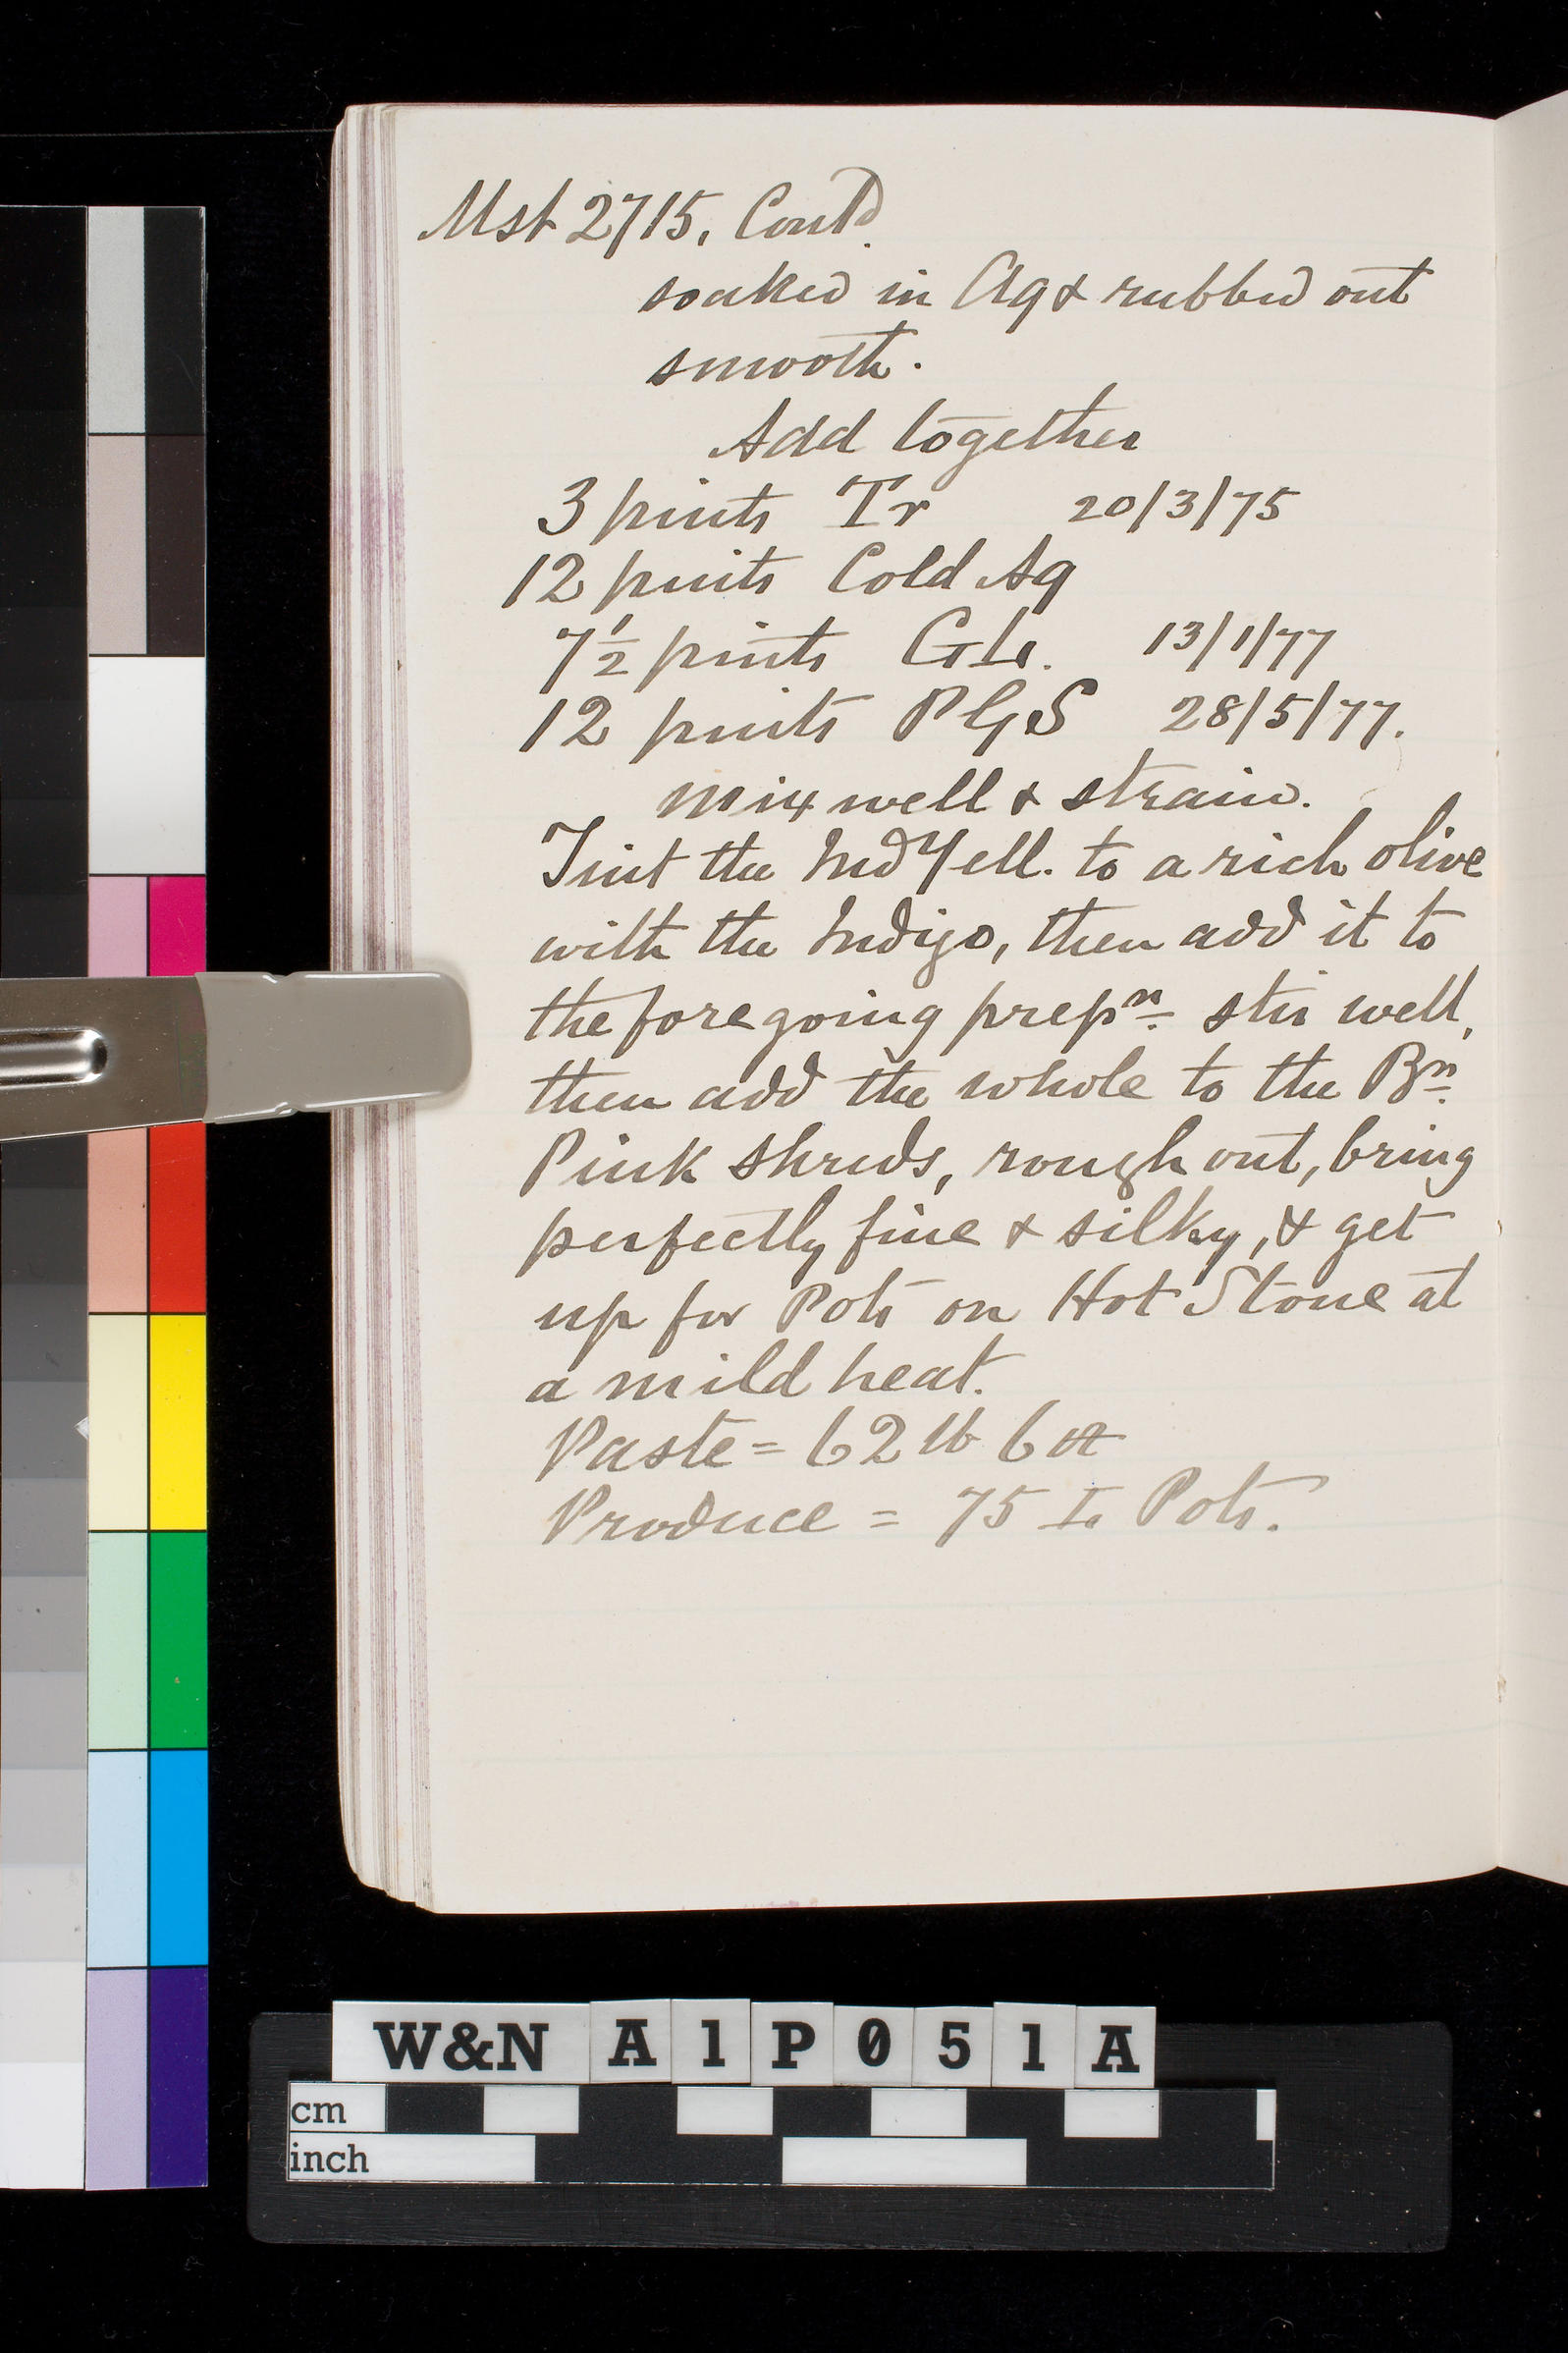 Mst 2715, Contd.
soaked in Aq & rubbed out
smooth.
Add together
3 pints Tr 20/3/75
12 pints Cold Aq
7½ pints 13/1/77
12 pints PGS 28/5/77.
mix well & strain.
Tint the Ind Yell. to a rich olive
with the Indigo, then add it to
the foregoing prepn. stir well,
then add the whole to the Bn.
Pink shreds, rough out, bring
perfectly fine & silky, & get
up for Pots on Hot Stone at
a mild heat.
Paste = 62 lb 6 oz
Produce = 75 Pots.
W&N A1P051A
cm
inch